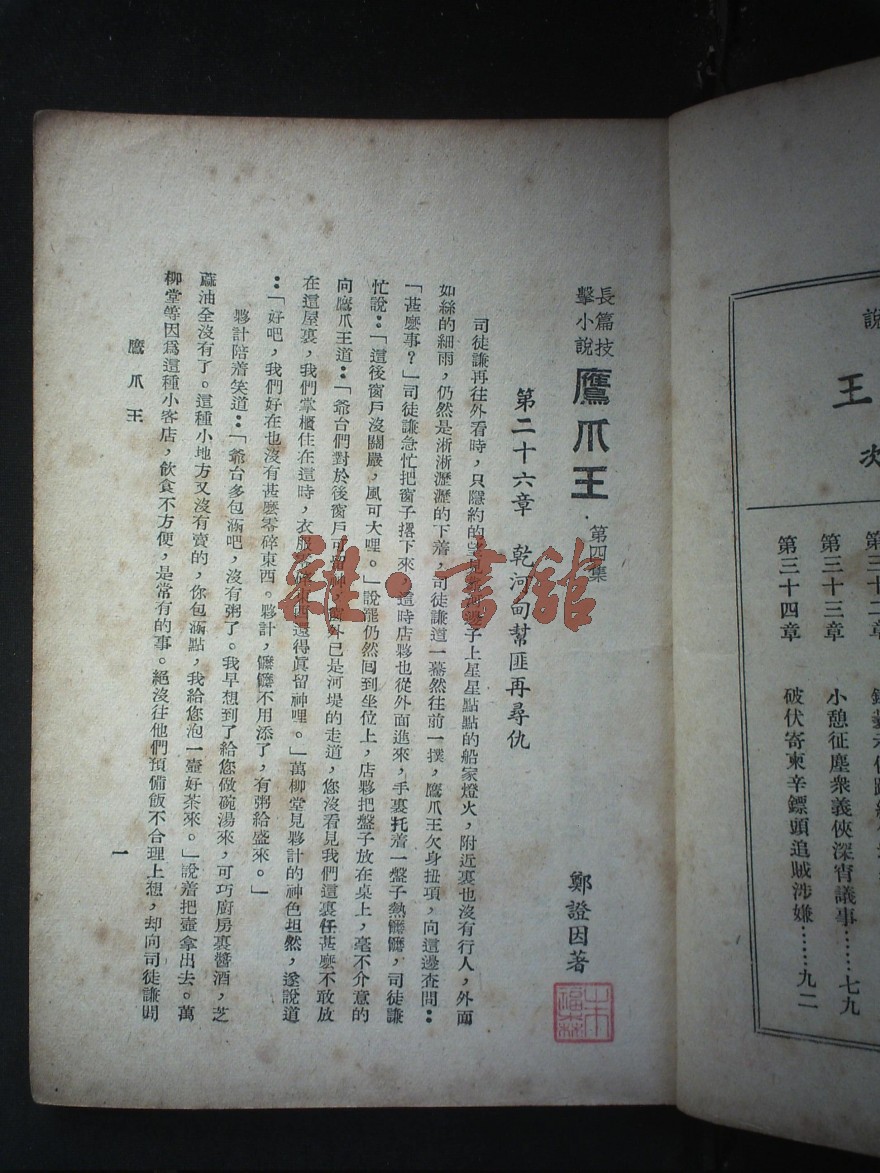 說
王
次
第三十二章
第三十三章 小憩征塵衆義俠深宵議事……七九
第三十四章 破伏寄柬辛鏢頭追賊涉嫌……九二
長篇技
擊小說
鷹爪王
第四集
鄭證因著
第二十六章 乾河甸幫匪再尋仇
司徒謙再往外看時，只隱約的 子上星星點點的船家燈火，附近裏也沒有行人，外面
如絲的細雨，仍然是淅淅瀝瀝的下着，司徒謙這一驀然往前一撲，鷹爪王欠身扭項，向這邊查問：
「甚麽事？」司徒謙急忙把窗子撂下來，這時店夥也從外面進來，手裏托着一盤子熱饝饝，司徒謙
忙說：「這後窗戶沒關嚴，風可大哩。」說罷仍然囘到坐位上，店夥把盤子放在桌上，毫不介意的
向鷹爪王道：「爺台們對於後窗戶可 外已是河堤的走道，您沒看見我們這裏任甚麽不敢放
在這屋裏，我們掌櫃住在這時，衣服 還得眞留神哩。」萬柳堂見夥計的神色坦然，遂說道
：「好吧，我們好在也沒有甚麽零碎東西。夥計，饝饝不用添了，有粥給盛來。」
夥計陪着笑道：「爺台多包涵吧，沒有粥了。我早想到了給您做碗湯來，可巧廚房裏醬酒，芝
蔴油全沒有了。這種小地方又沒有賣的，你包涵點，我給您泡一壺好茶來。」說着把壺拿出去。萬
柳堂等因爲這種小客店，飲食不方便，是常有的事。絕沒往他們預備飯不合理上想，却向司徒謙問
鷹爪王
一
雜·書館